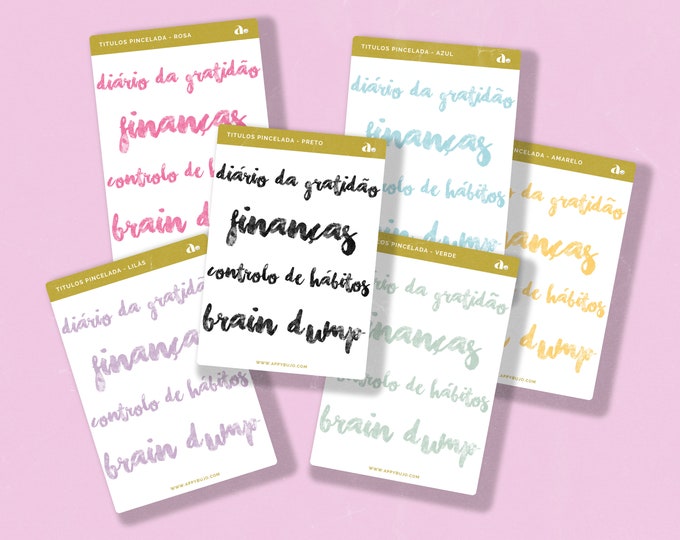 TITULOS PINCELADA - ROSA
diário da gratidão
finanças
controlo de há
brain d
TITULOS PINCELADA - AZUL
diário da gratidão
finanças
de hábitos
dump
TITULOS PINCELADA - PRETO
diário da gratidão
finanças
controlo de hábitos
brain dump
WWW.APPYBUJO.COM
- AMARELO
gratidão
finanças
de hábitos
dump
TITULOS PINCELADA - LILÁS
diário da gratidão
finanças
controlo de hábitos
brain dump
WWW.APPYBUJO.COM
- VERDE
gratidão
finanças
controlo de hábitos
brain dump
WWW.APPYBUJO.COM